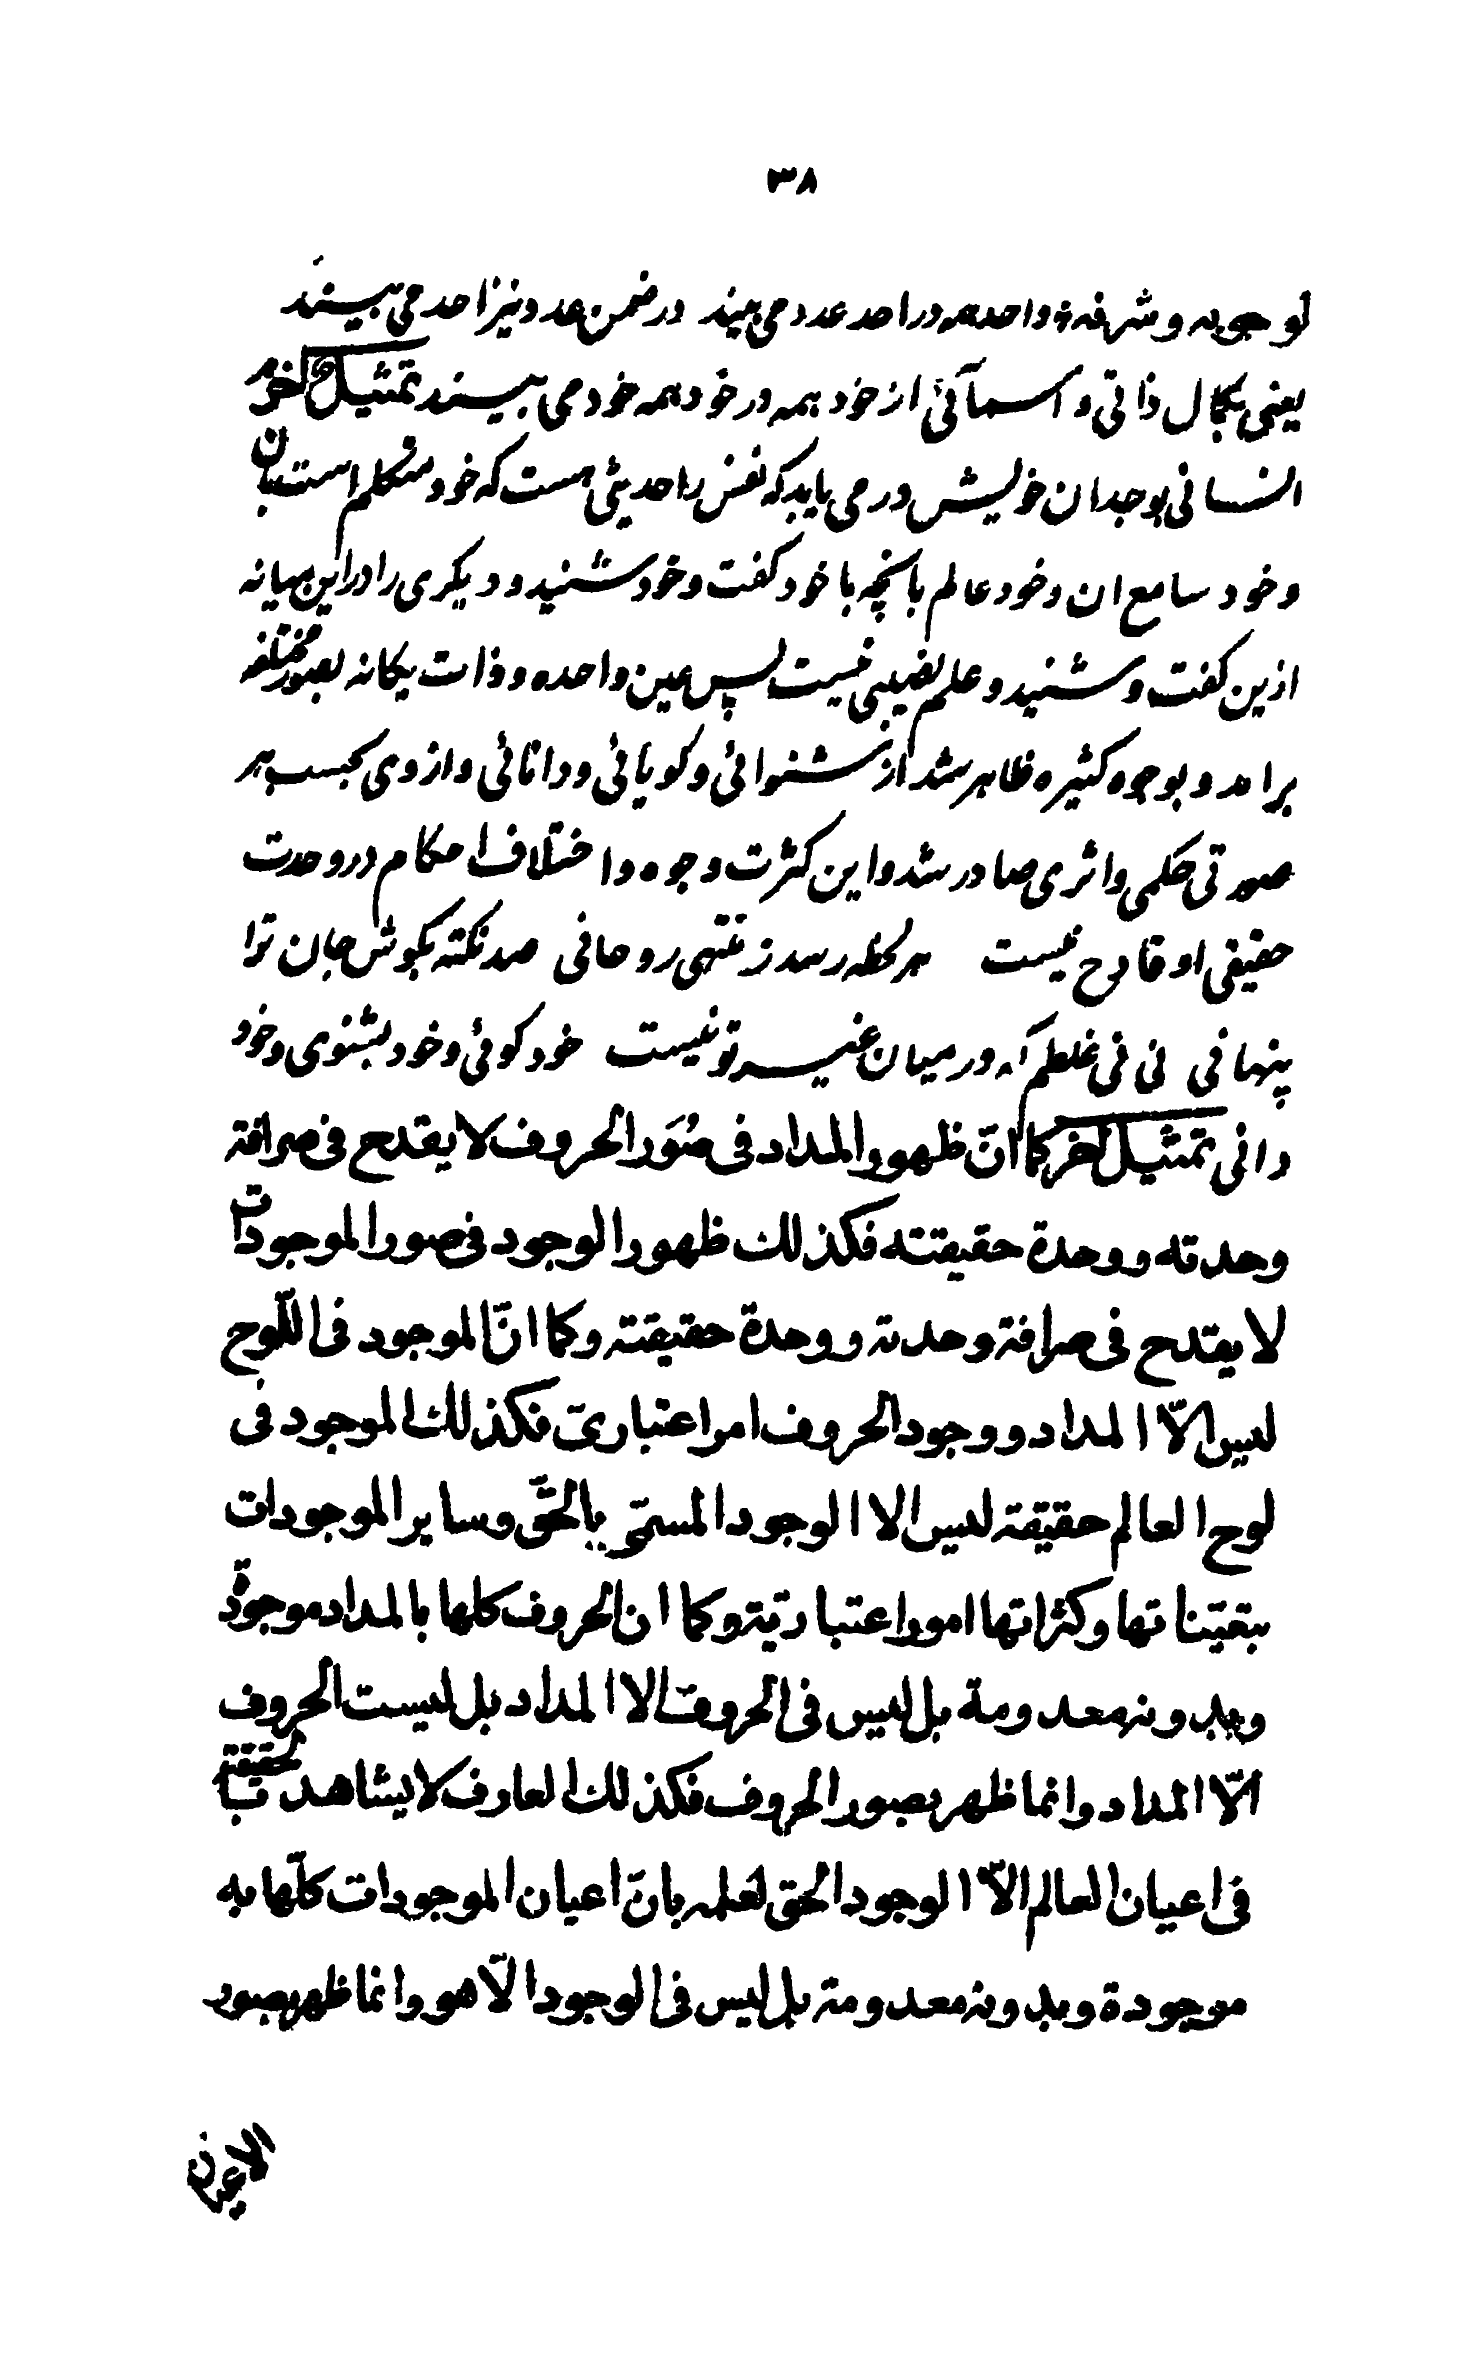 ٣٨
در احد عدد می بیند در ضمن عدد نیز احد می بیند
یعنی بکمال ذاتی و اسمآئی از خود همه در خود همه خود می بیند تمثیل اخر
انسانی بوجدان خویش در می یابد که نفس را حدیثی هست که خود متکلم است بان
و خود سامع ان و خود عالم بانچه با خود گفت و خود شنید و دیگری را در این میانه
ازین گفت و شنید و علم نصیبی نیست پس عین واحده و ذات یگانه بصور مختلفه
برامد و بوجوه کثیره ظاهر شد از شنوائی و گویائی و دانائی و از وی بحسب هر
صورتی حکمی و اثری صادر شد و این کثرت وجوه و اختلاف احکام در وحدت
حقیقی او قادح نیست هر لحظه رسد ز منهی روحانی صد نکته بگوش جان ترا
پنهانی نی نی غلطم که در میان غیر تو نیست خود گوئی و خود بشنوی و خود
دانی تمثیل اخر کما انّ ظهور المداد فی صُوَر الحروف لا یقدح فی صرافة
وحدته و وحدة حقیقته فکذلك ظهور الوجود فی صور الموجودات
لا یقدح فی صرافة وحدته و وحدة حقیقته و کما انّ الموجود فی اللّوح
لیس الّا المداد و وجود الحروف امر اعتباریّ فکذلك الموجود فی
لوح العالم حقیقة لیس الا الوجود المسمّی بالحقّ و سایر الموجودات
بتعیّناتها و کثراتها امور اعتباریّة و کما ان الحروف کلها بالمداد موجودة
و بدونه معدومة بل لیس فی الحروف الا المداد بل لیست الحروف
الّا المداد و انما ظهر بصور الحروف فکذلك العارف لا یشاهد حقیقة
فی اعیان العالم الّا الوجود الحق لعلمه بانّ اعیان الموجودات کلّها به
موجودة و بدونه معدومة بل لیس فی الوجود الّا هو و انما ظهر بصور
الاعیان